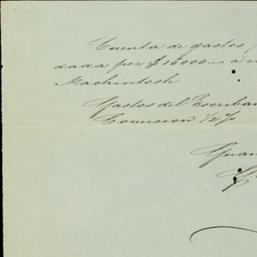 Cuenta de gastos
dada por $16000.— a
Mackintosh
Gastos del Escriban
Comision 1/2 %
Guan